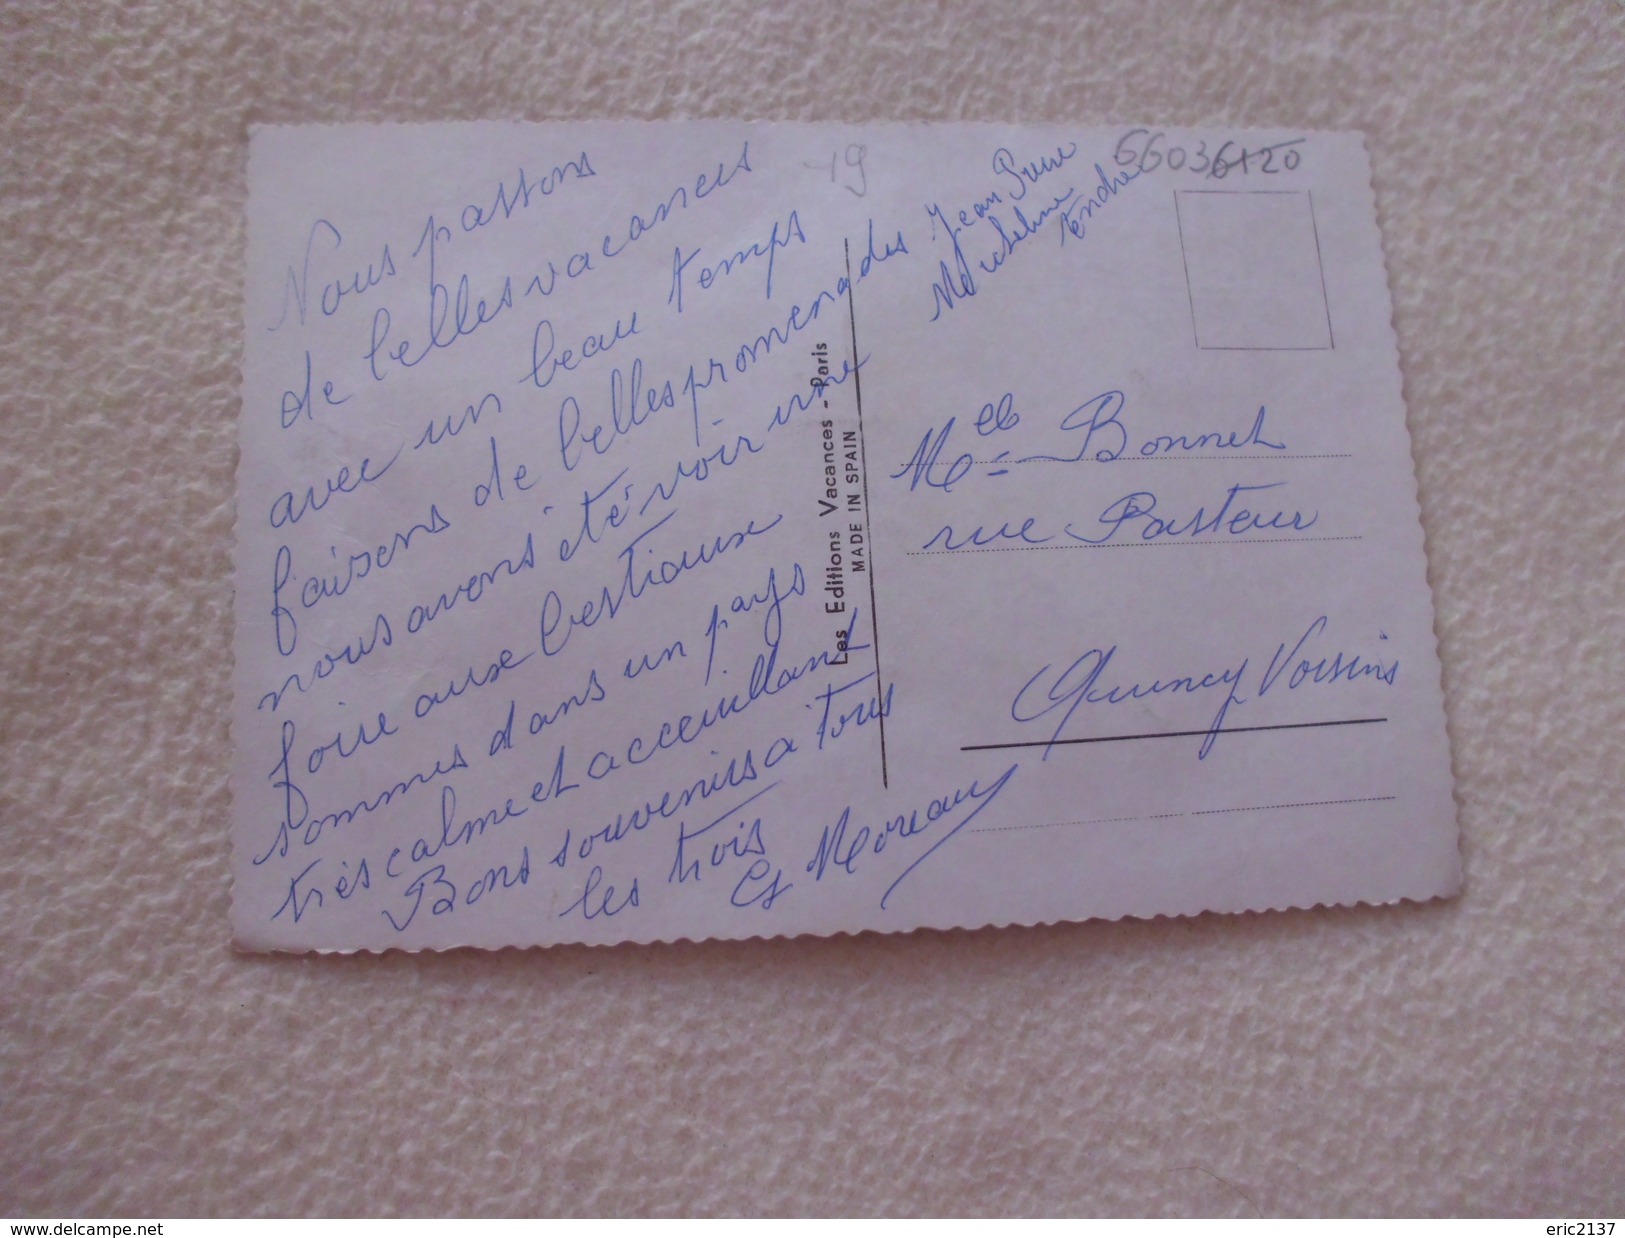 Nous passons
de belles vacances
avec un beau temps
faisons de belles promenades
nous avons été voir une
foire aux bestiaux
sommes dans un pays
très calme et acceuillant
Bons souvenirs a tous
les trois
G Moreau
Jean Pierre
Micheline
André
19
66036120
Les Editions Vacances - Paris
MADE IN SPAIN
Melle Bonnet
rue Pasteur
Quincy Voisins
www.delcampe.net
eric2137